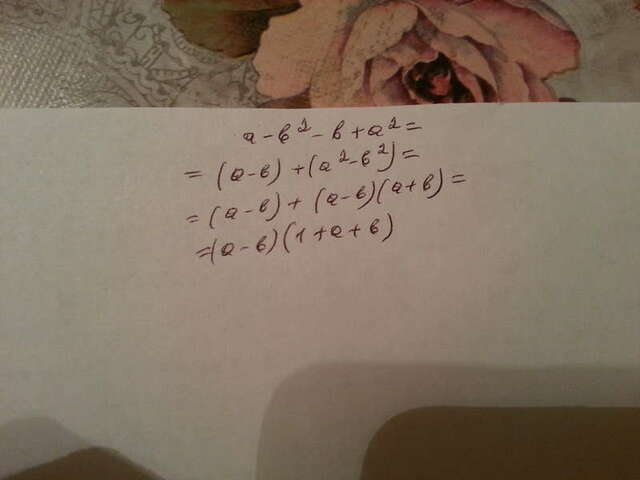 a - b² - b + a² =
= (a - b) + (a² - b²) =
= (a - b) + (a - b)(a + b) =
= (a - b)(1 + a + b)